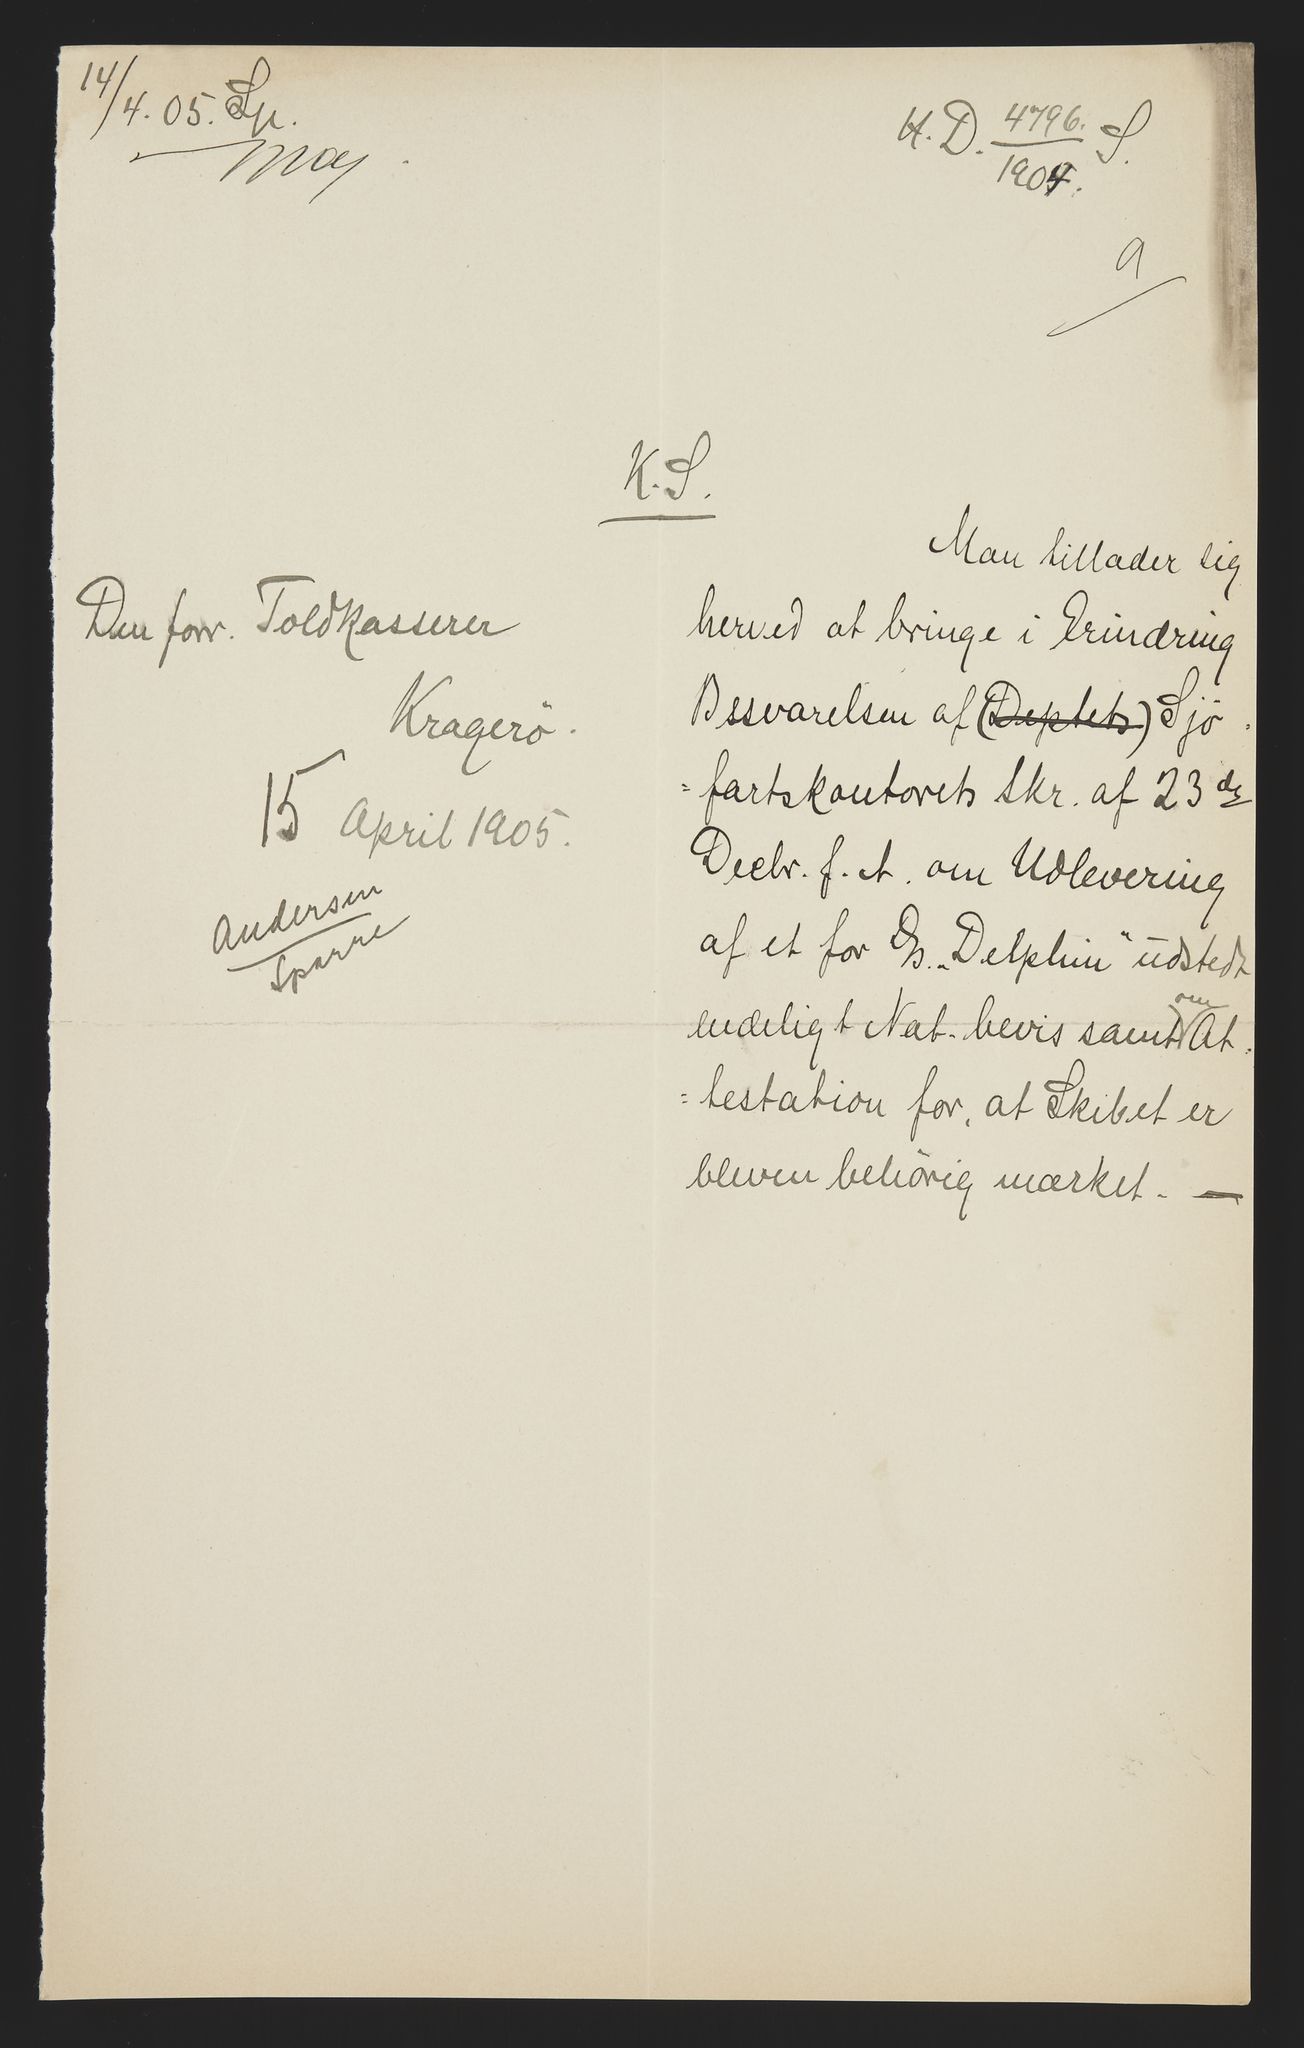 14/4. 05. Sp.
H. D. 4796. S.
1904.
a
K. S.
Den forr. Toldkasserer
Kragerö.
15 April 1905.
Andersen
Sparre
Man tillader sig
herved at bringe i Erindring
Besvarelsen af (Deptets) Sjö
=fartskontorets Skr. af 23de
Decbr. f. A. om Udlevering
af et for D/s. „Delphin" udstedt
endeligt Nat. bevis samt om At=
=testation for, at Skibet er
bleven behörig mærket. —